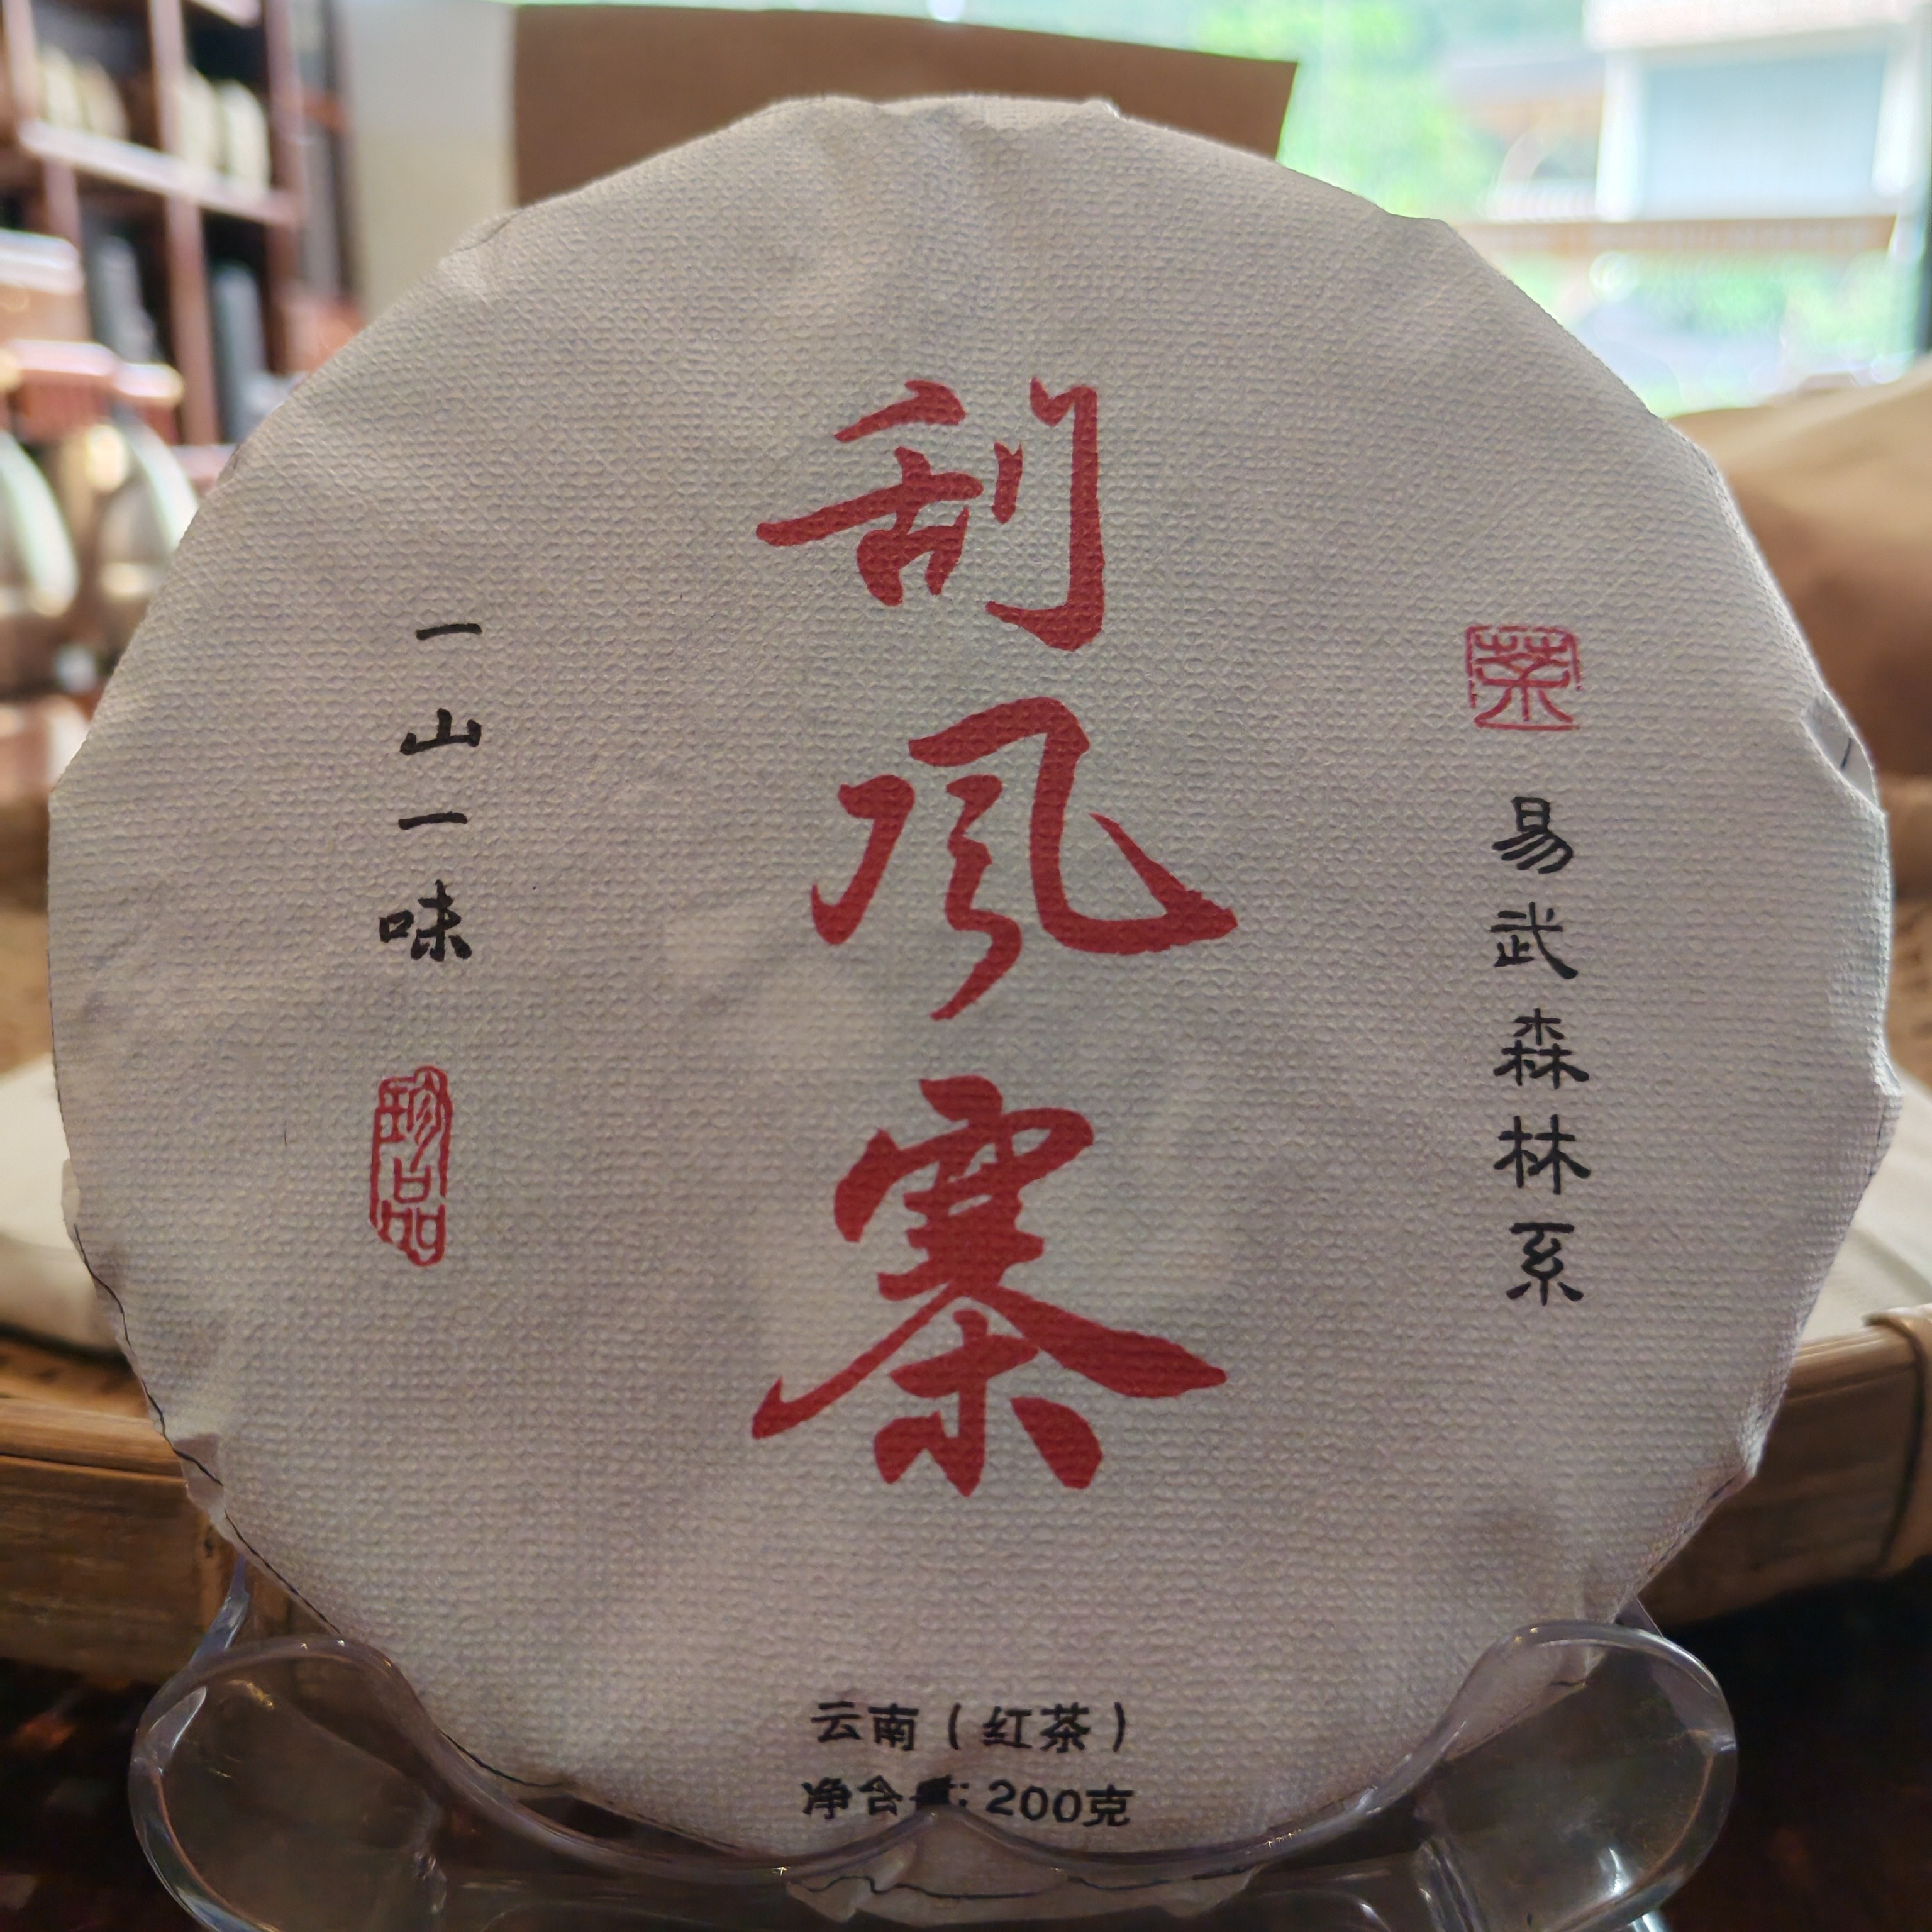 茶
易武森林系
刮风寨
一山一味
珍品
云南（红茶）
净含量: 200克